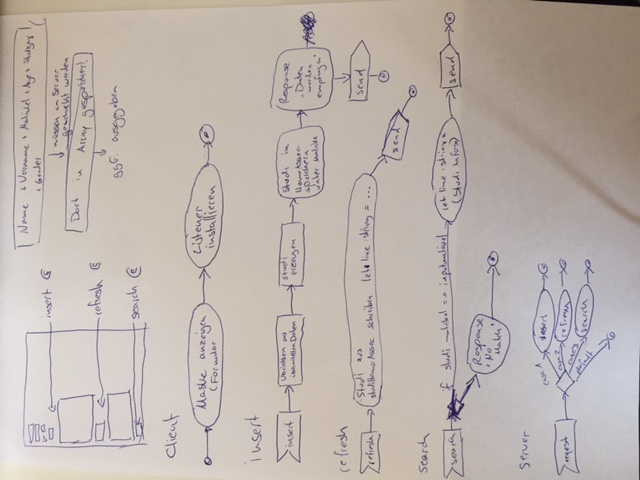 insert
refresh
search
Name + Vorname + Matrikel + Age + Studiengang
+ Gender
müssen an Server
geschickt werden
Dort in Array gespeichert
ggf. ausgegeben
Client
Maske anzeigen
(Formular
Listener
installieren
insert
insert
Variablen aus
Daten
Studi
erzeugen
Studi in
HomoAssoc
speichern
unter Matrikel
Response
"Daten
wurden
empfangen"
send
refresh
refresh
Studi aus
studiHomoAssoc schreiben let line:string = ...
send
search
search
if studi matrikel == inputmatrikel
let line:string =
(Studi Infos)
send
Response
"No
Match"
server
request
case 1
insert
case 2
refresh
case 3
search
default